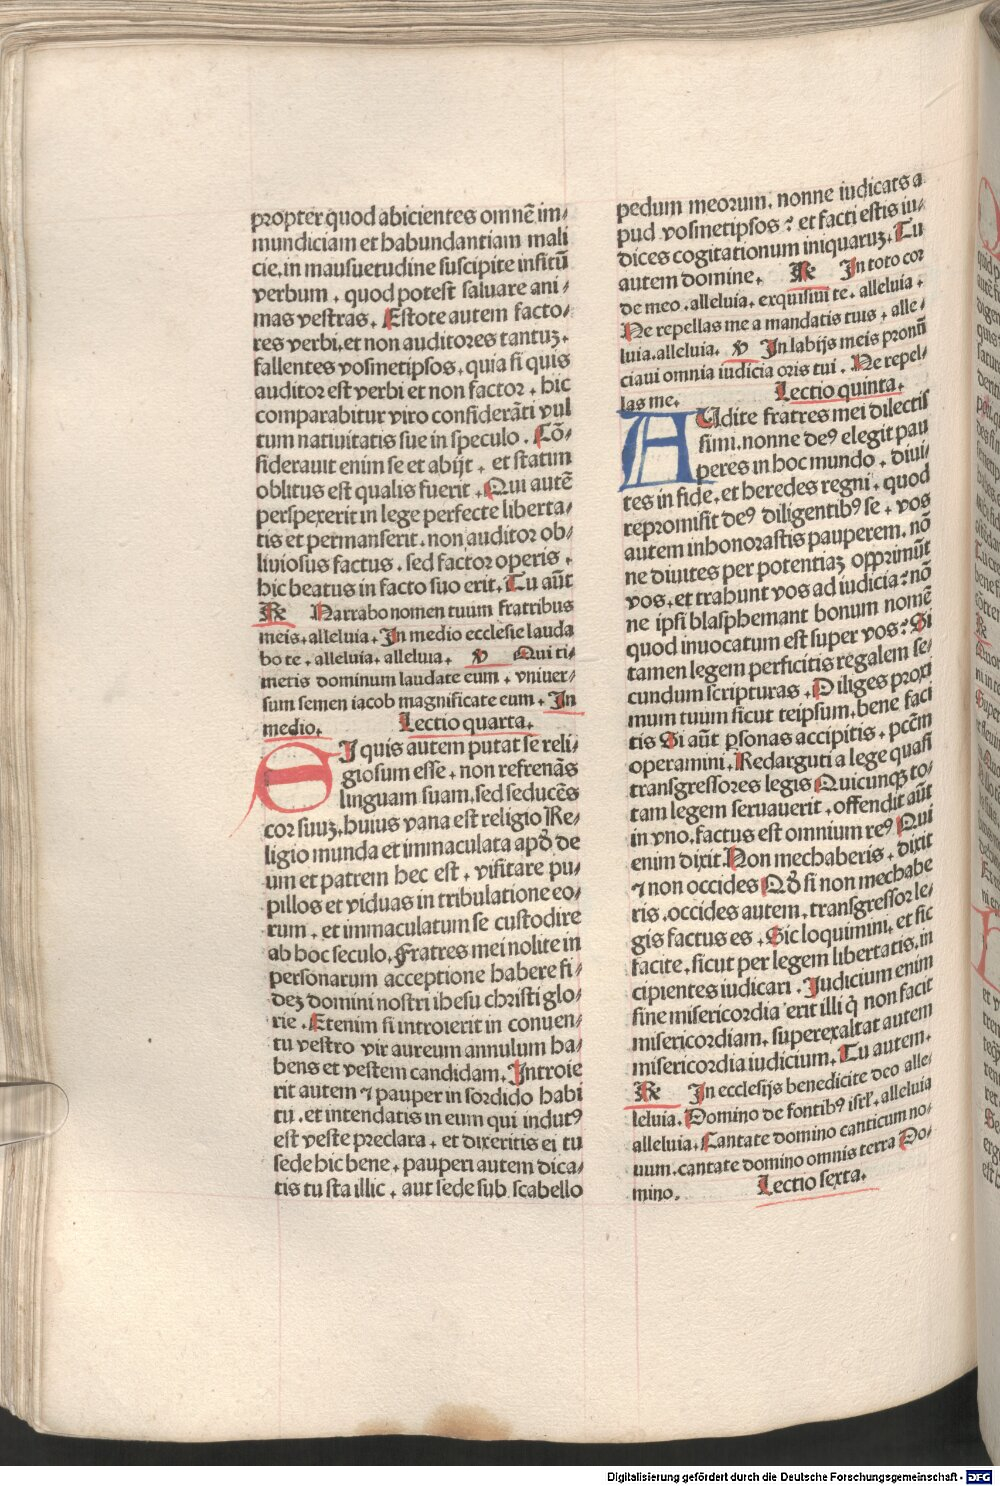 propter quod abicientes omnē im/
mundiciam et habundantiam mali
cie, in mansuetudine suscipite insitū
verbum . quod potest saluare ani/
mas vestras. Estote autem facto/
res verbi, et non auditores tantuʒ.
fallentes vosmetipsos, quia si quis
auditor est verbi et non factor . hic
comparabitur viro considerāti vul
tum natiuitatis sue in speculo . Cō/
siderauit enim se et abijt . et statim
oblitus est qualis fuerit . Qui autē
perspexerit in lege perfecte liberta/
tis et permanserit. non auditor ob/
liuiosus factus . sed factor operis .
hic beatus in facto suo erit. Tu aūt
℟ Narrabo nomen tuum fratribus
meis. alleluia. In medio ecclesie lauda
bo te . alleluia. alleluia . ℣ Qui ti/
metis dominum laudate eum . vniuer/
sum semen iacob magnificate eum . In
medio. Lectio quarta.
SI quis autem putat se reli/
giosum esse . non refrenās
linguam suam, sed seducēs
cor suuʒ, huius vana est religio Re/
ligio munda et immaculata apđ de
um et patrem hec est . visitare pu/
pillos et viduas in tribulatione eo/
rum . et immaculatum se custodire
ab hoc seculo. Fratres mei nolite in
personarum acceptione habere fi/
deʒ domini nostri ihesu christi glo/
rie . Etenim si introierit in conuen/
tu vestro vir aureum annulum ha/
bens et vestem candidam. Introie
rit autem ⁊ pauper in sordido habi
tu . et intendatis in eum qui indutꝰ
est veste preclara . et dixeritis ei tu
sede hic bene . pauperi autem dica/
tis tu sta illic . aut sede sub scabello
pedum meorum. nonne iudicats a
pud vosmetipsos? et facti estis iu/
dices cogitationum iniquaruʒ. Tu
autem domine. ℟ In toto cor
de meo . alleluia. exquisiui te. alleluia .
Ne repellas me a mandatis tuis . alle/
luia. alleluia. ℣ In labijs meis pronū
ciaui omnia iudicia oris tui . Ne repel/
las me. Lectio quinta.
AUdite fratres mei dilectis
simi. nonne deꝰ elegit pau
peres in hoc mundo . diui/
tes in fide, et heredes regni . quod
repromisit deꝰ diligentibꝰ se . vos
autem inhonorastis pauperem. nō
ne diuites per potentiaʒ opprimūt
vos, et trahunt vos ad iudicia? nō
ne ipsi blasphemant bonum nomē
quod inuocatum est super vos? Si
tamen legem perficitis regalem se/
cundum scripturas . Diliges proxi
mum tuum sicut teipsum. bene faci
tis Si aūt ꝑsonas accipitis . pctm̄
operamini . Redarguti a lege quasi
transgressores legis Quicunqꝫ to/
tam legem seruauerit . offendit aūt
in vno, factus est omnium reꝰ Qui
enim dixit. Non mechaberis . dixit
⁊ non occides Qđ si non mechabe
ris . occides autem, transgressor le/
gis factus es . Sic loquimini, et sic
facite, sicut per legem libertatis, in
cipientes iudicari . Judicium enim
sine misericordia erit illi q̇ non facit
misericordiam, superexaltat autem
misericordia iudicium. Tu autem.
℟ In ecclesijs benedicite deo alle/
leluia. Domino de fontibꝰ isrł. alleluia
alleluia. Cantate domino canticum no/
uum. cantate domino omnis terra Do/
mino. Lectio sexta.
Digitalisierung gefördert durch die Deutsche Forschungsgemeinschaft - DFG